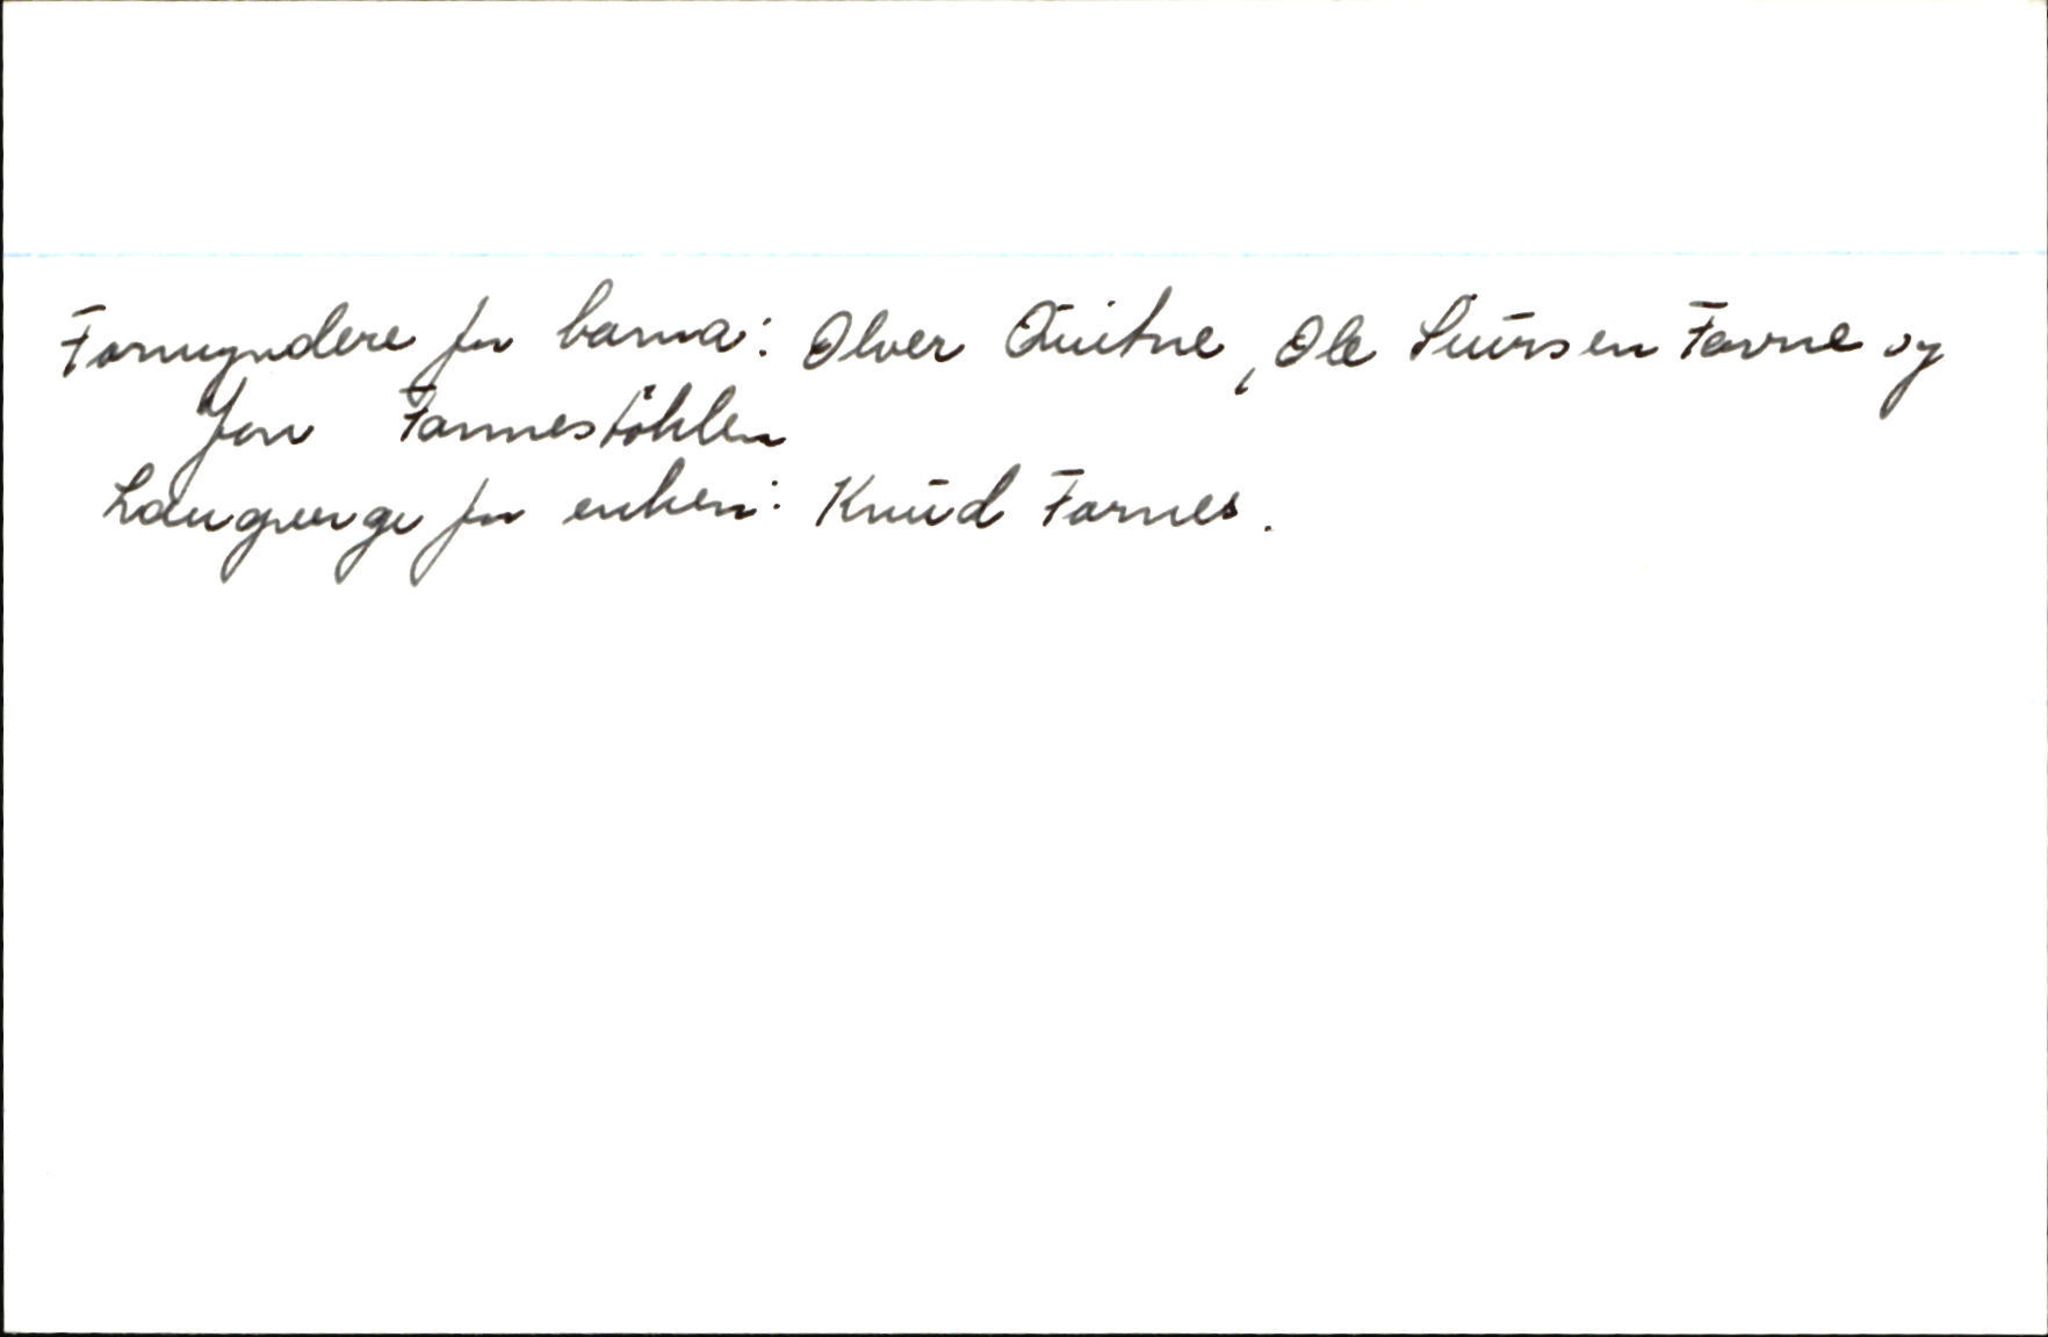 Formyndere for barna: Olver Quitne, Ole Siursen Favne og
Jon Farnestöhlen
Laugverge for enken: Knud Farnes.